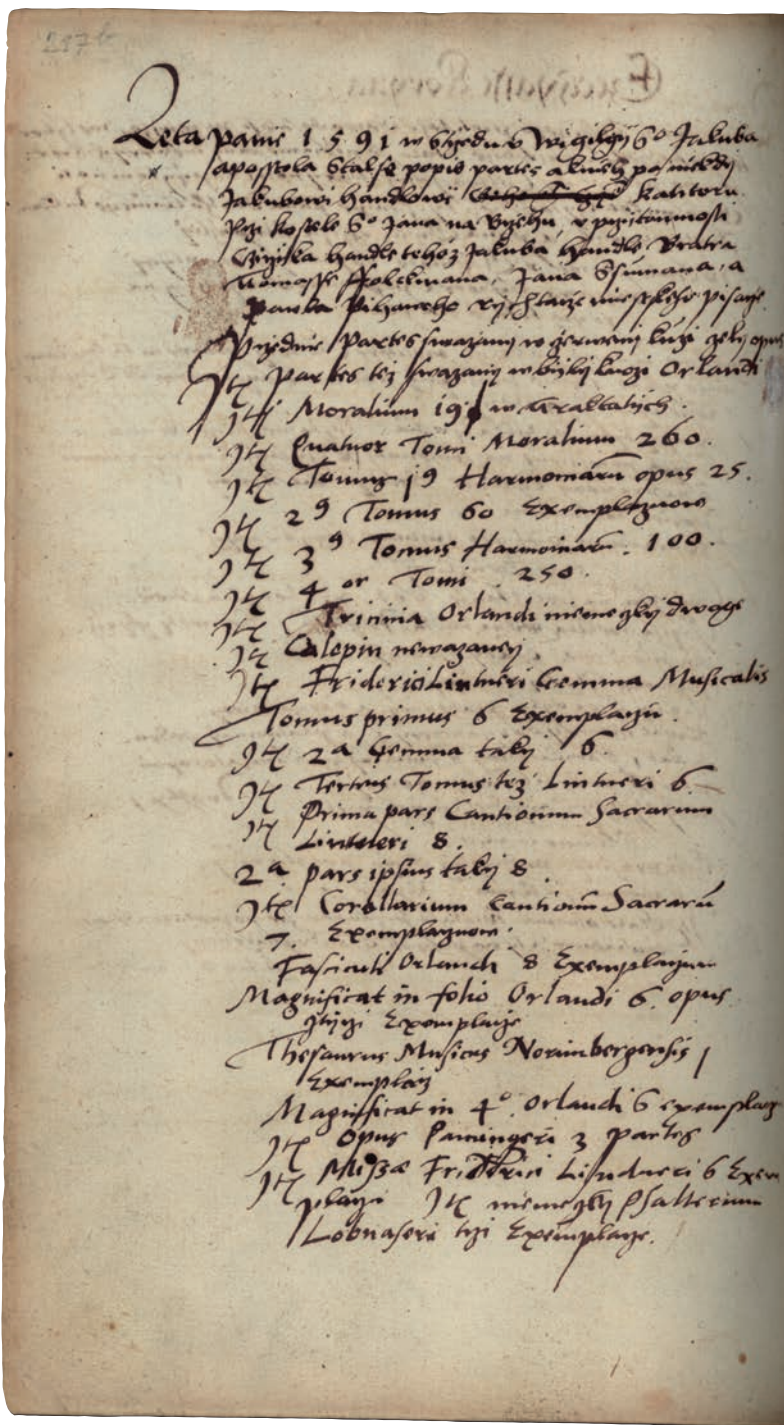 257b
Leta Panie 1591 w Strzedu v Wigilgij S° Jakuba
aposstola Stal se popis partes a kněh po někdy
Jakubowi Handlowi kantoru
Przi kostele S° Jana na Brzehu, v przitomnosti
Girzika Handle tehoż Jakuba Handle Bratra
Tomasse Folckmana, Jana a
Pawla rychtarze miestskeho pisarze
Przednie Partes swazany w knizi opus
Itē Partes tež swazany w bily knizi Orlandi
Itē Moralium 19 w
Itē Quatuor Tomi Moralium 260.
Itē Tomus 19 Harmoniarū opus 25.
Itē 2⁹ Tomus 60 Exemplarzuow
Itē 3⁹ Tomus Harmoniarū. 100.
Itē 4 or Tomi . 250.
Itē Tricinia Orlandi niemeczky dwoge
Itē Calepin newazaney.
Itē Friderici Lintneri Gemma Musicalis
Tomus primus 6 Exemplarzu.
Itē 2ª Gemma taky 6.
Itē Tertius Tomus tez Lintneri 6
Itē Prima pars Cantionum Sacrarum
Lintneri 8.
2ª pars ipsius taky 8.
Itē Corollarium Cantionū Sacrarū
7. Exemplarzuow.
Fasciculi Orlandi 8 Exemplarzuw
Magnificat in folio Orlandi 6. opus
Exemplarze
Thesaurus Musicus Norimbergensis 1
Exemplarz
Magnificat in 4°. Orlandi 6 exemplarz
Itē Opus Pamingeri 3 partes
Itē Missæ Friderici Lindneri 6 Exem
plarzi Itē niemeczky Psalterium
Lobuaseri trzi Exemplarze.